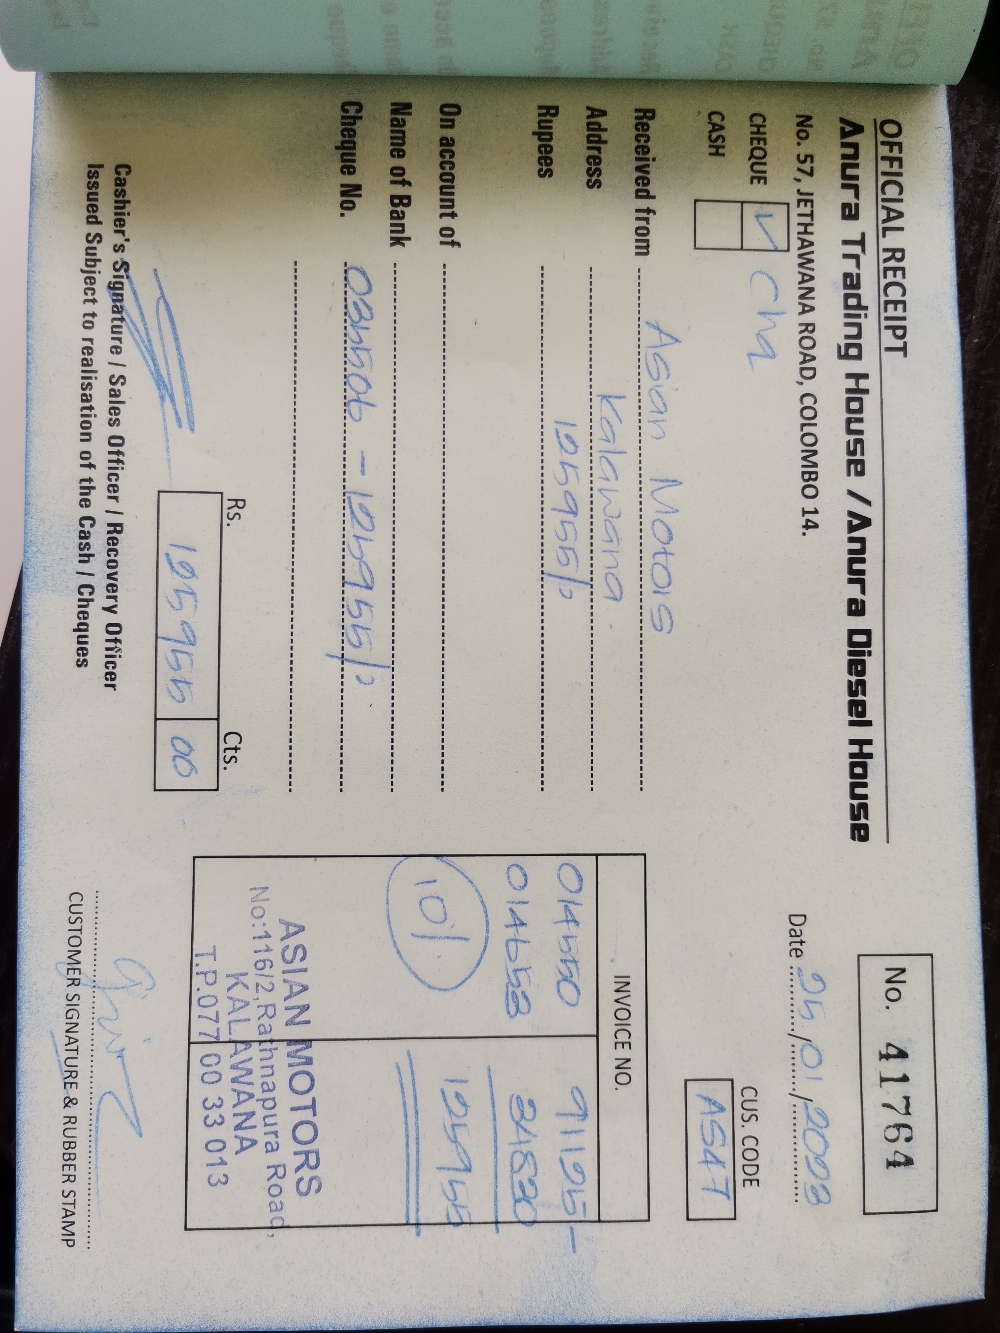 OFFICIAL RECEIPT
Anura Trading House / Anura Diesel House
No. 57, JETHAWANA ROAD, COLOMBO 14.
No. 41764
Date 25/01/2023
CHEQUE ✓ Cha
CASH
CUS. CODE
AS47
Received from Asian Motors
Address Kalawana.
Rupees 125955/=
On account of
Name of Bank
Cheque No.
INVOICE NO.
014550 91125-
014653 34830
101 125955
Rs. Cts.
125955 00
ASIAN MOTORS
No:116/2,Rathnapura Road,
KALAWANA
T.P.077 00 33 013
Cashier's Signature / Sales Officer / Recovery Officer
Issued Subject to realisation of the Cash / Cheques
CUSTOMER SIGNATURE & RUBBER STAMP